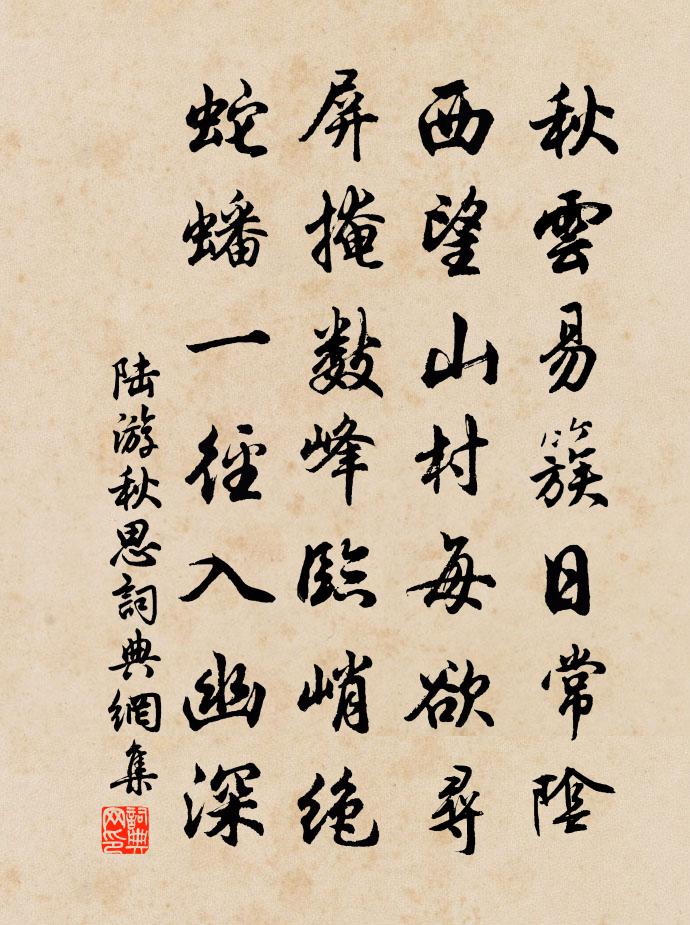 秋雲易簇日常陰
西望山村每欲尋
屏掩數峰臨峭絕
蛇蟠一徑入幽深
陆游秋思詞典網集
詞典
网印